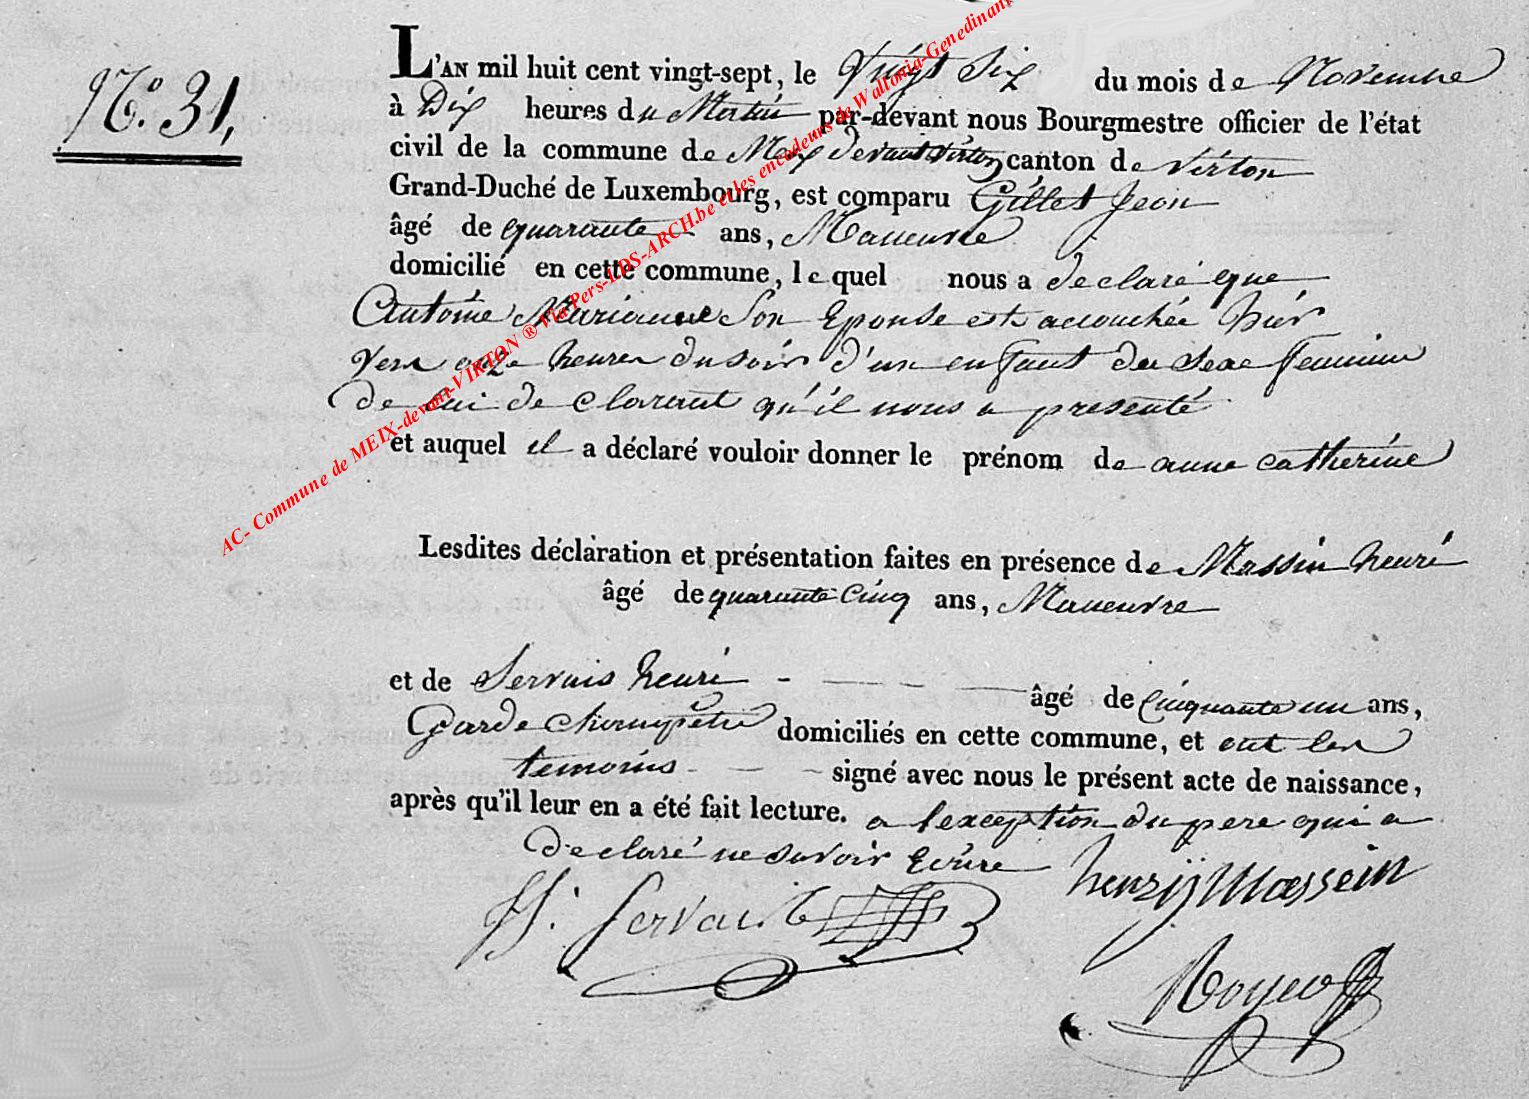 N.° 31,
L'AN mil huit cent vingt-sept, le Vingt Six du mois de Novembre
à Dix heures du Matin par-devant nous Bourgmestre officier de l'état
civil de la commune de Meix devant virton canton de virton
Grand-Duché de Luxembourg, est comparu Gillet Jean
âgé de quarante ans, Maneuvre
domicilié en cette commune, lequel nous a declaré que
Antoine Marianne Son Epouse est accouchée hier
vers onze heures du soir d'un enfant du sexe feminin
de lui declarant qu'il nous a presenté
et auquel il a déclaré vouloir donner le prénom de anne catherine
Lesdites déclaration et présentation faites en présence de Massin henri
âgé de quarante cinq ans, Maneuvre
et de Servais henri âgé de Cinquante un ans,
Garde champetre domiciliés en cette commune, et ont les
temoins signé avec nous le présent acte de naissance,
après qu'il leur en a été fait lecture. a l'exception du pere qui a
declaré ne savoir Ecrire
henrij Massein
H. Servais
AC- Commune de MEIX-devant-VIRTON ® Via Pers-LDS-ARCH.be et les encodeurs de Wallonia-Genedinant